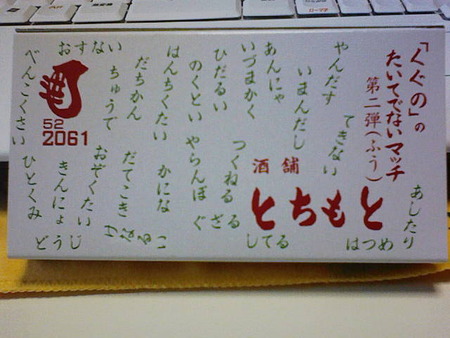 「くぐの」の
たいてでないマッチ
第二弾(ふう)
あしたり
はつめ
やんだす
できない
いまんだし
あんにゃ
いづまかく
ひだるい
つくねる
ぐざる
してる
のくとい
やらんぼ
はんちくたい
かにな
だちかん
だてこき
ちゅうで
おぞくたい
おすない
きんにょ
どうじ
べんこくさい
ひとくみ
酒
52
2061
酒舗
とちもと